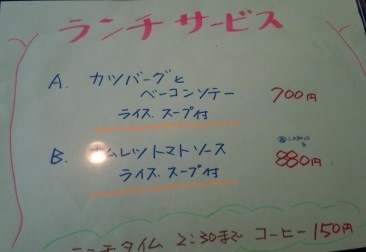 ランチサービス
A. カツバーグと
ベーコンソテー 700円
ライス.スープ付
B. オムレツトマトソース 880円
ライス.スープ付
ランチタイム 2:30まで コーヒー150円